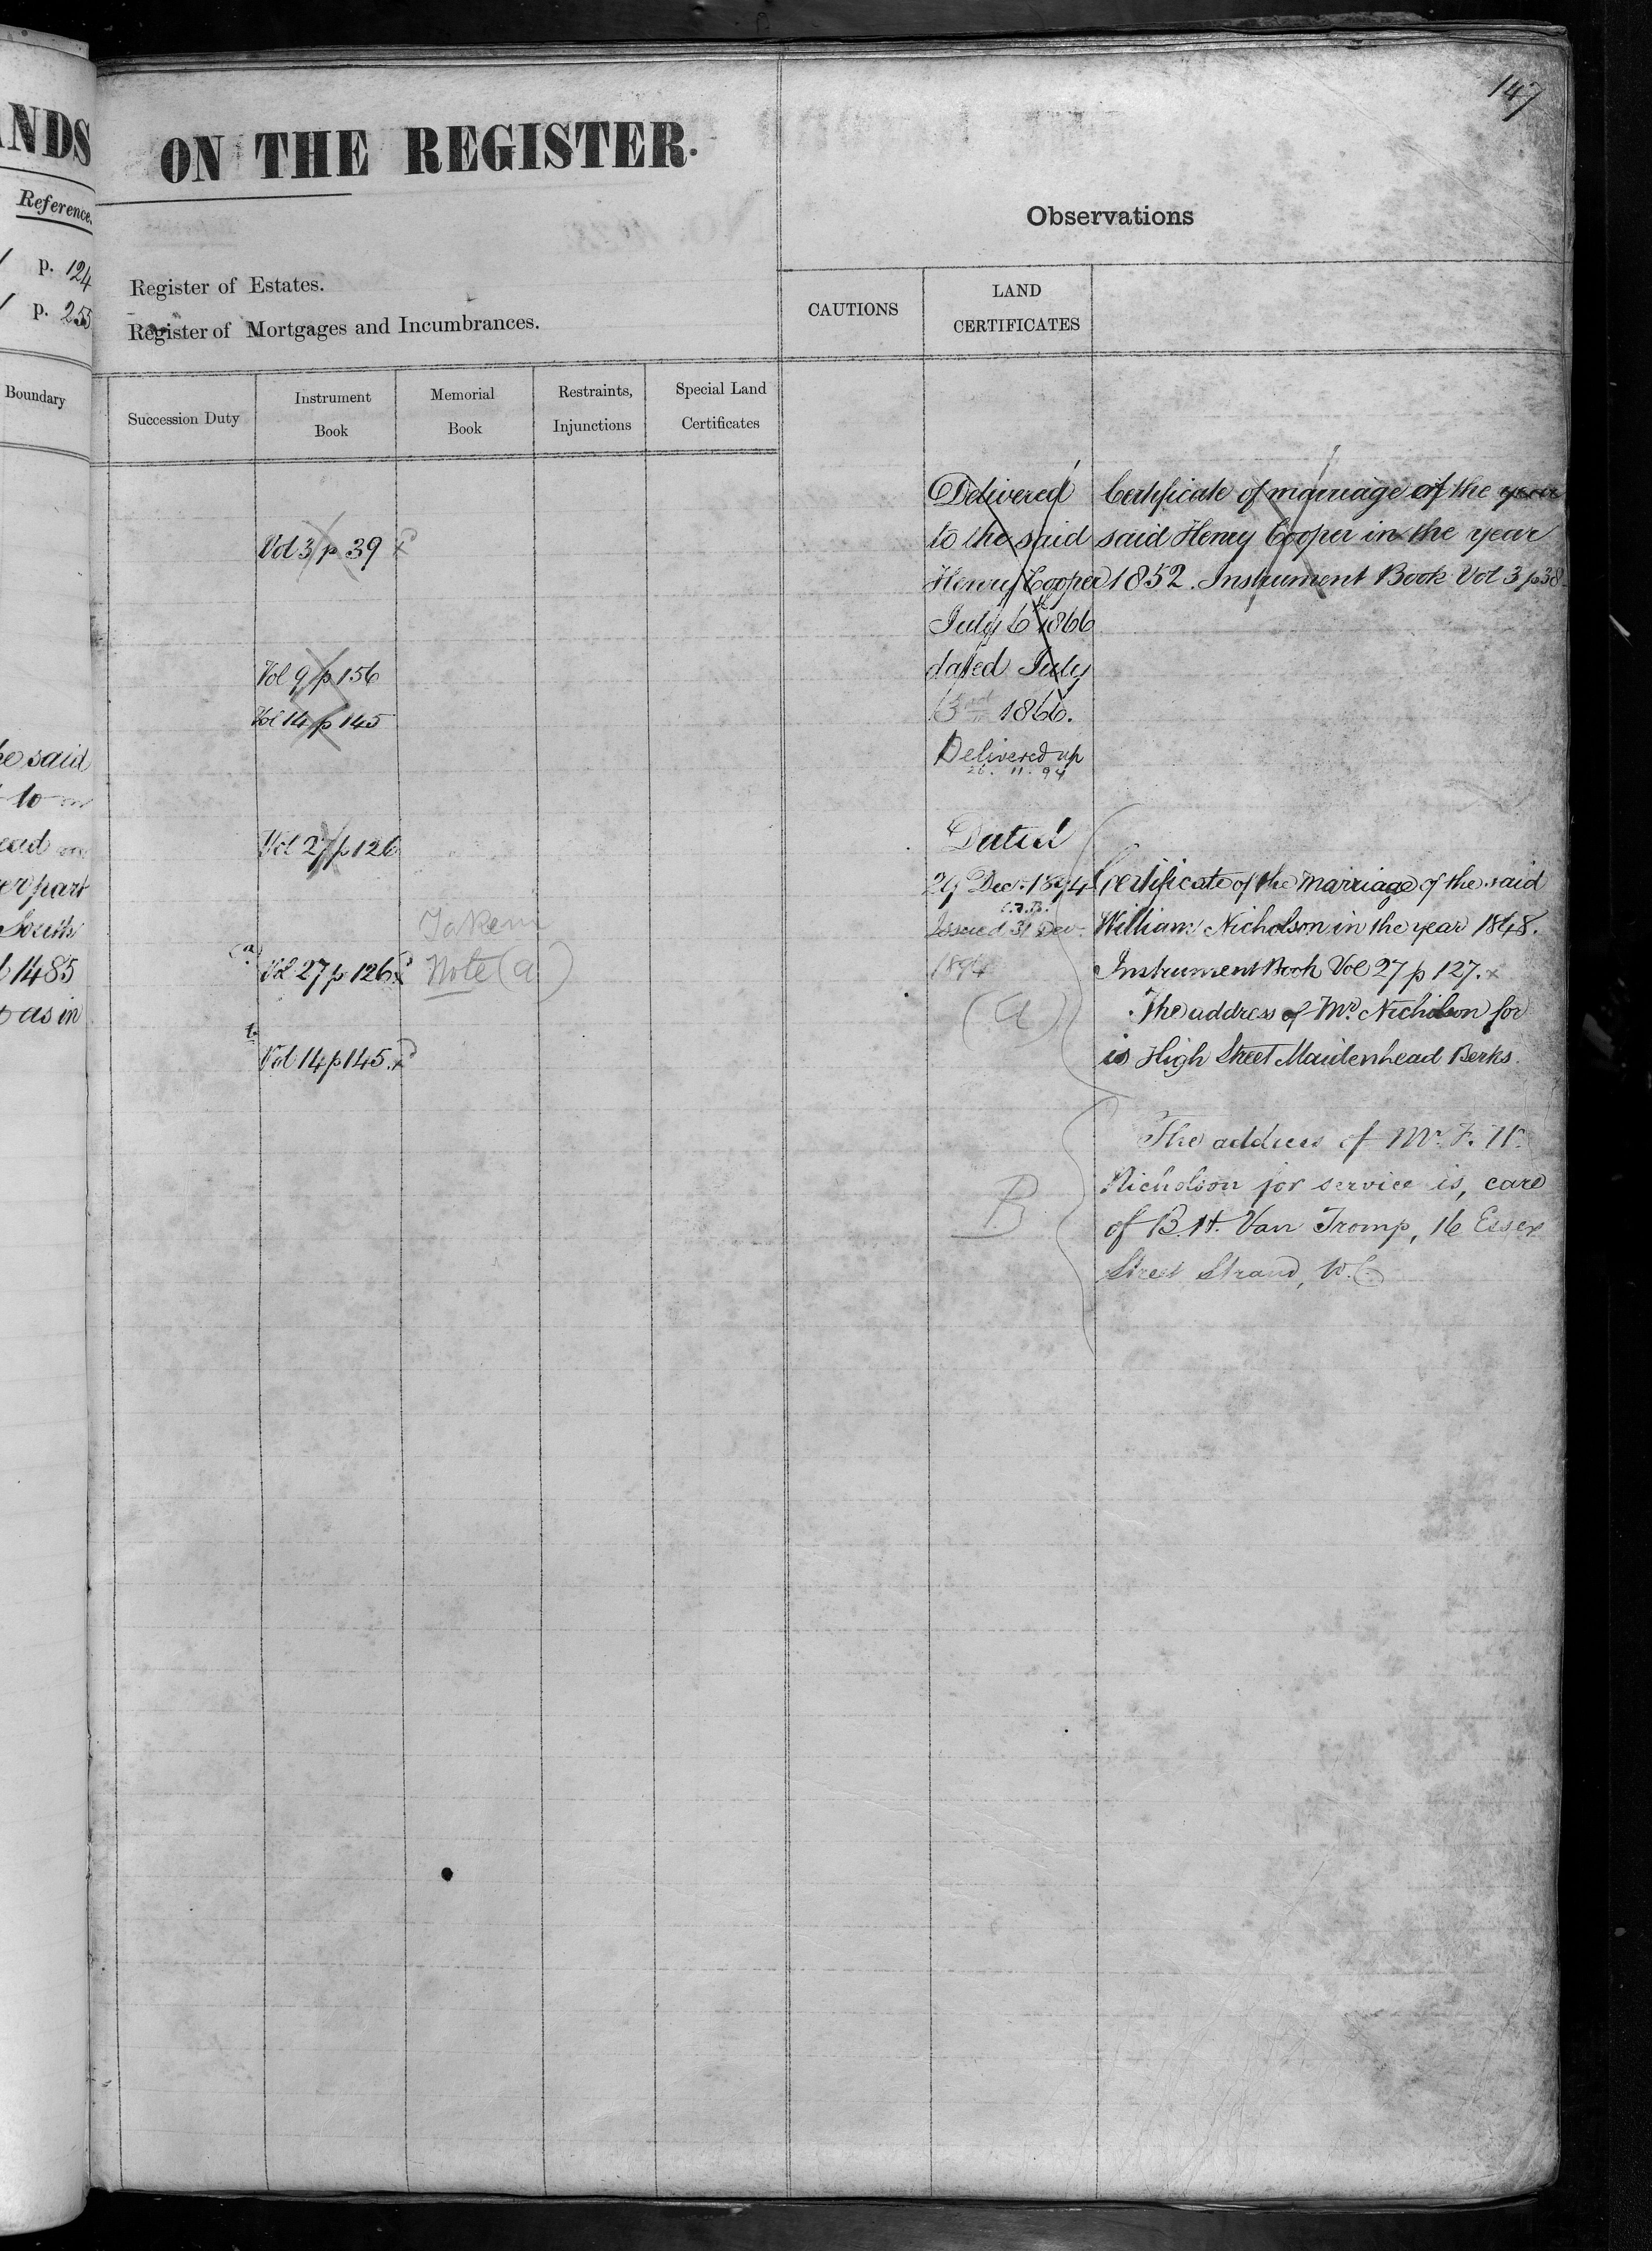 ANDS
Reference.
p. 124
p. 255
Boundary
he said
to
ead
er part
South
1485
as in
147
ON THE REGISTER.
Register of Estates.
Register of Mortgages and Incumbrances.
Succession Duty
Instrument
Book
Memorial
Book
Restraints,
Injunctions
Special Land
Certificates
Vol 3 p 39 x
Vol 9 p 156
Vol 14 p 145
Vol 27 p 126
Vol 27 p 126 x
Vol 14 p 145 x
Taken
Note (a)
Observations
CAUTIONS
LAND
CERTIFICATES
Delivered
to the said
Henry Cooper
July 6th 1866
dated July
3rd 1866.
Delivered up
26. 11. 94
Dated
29 Dec. 1894
Issued 31 Dec.
1894
(a)
B
Certificate of marriage of the year
said Henry Cooper in the year
1852. Instrument Book Vol 3 p 38
Certificate of the Marriage of the said
William Nicholson in the year 1848.
Instrument Book Vol 27 p 127. x
The address of Mr. Nicholson for
is High Street Maidenhead Berks.
The address of Mr. F. W.
Nicholson for service is, care
of B. H. Van Tromp, 16 Essex
Street Strand, W.C.